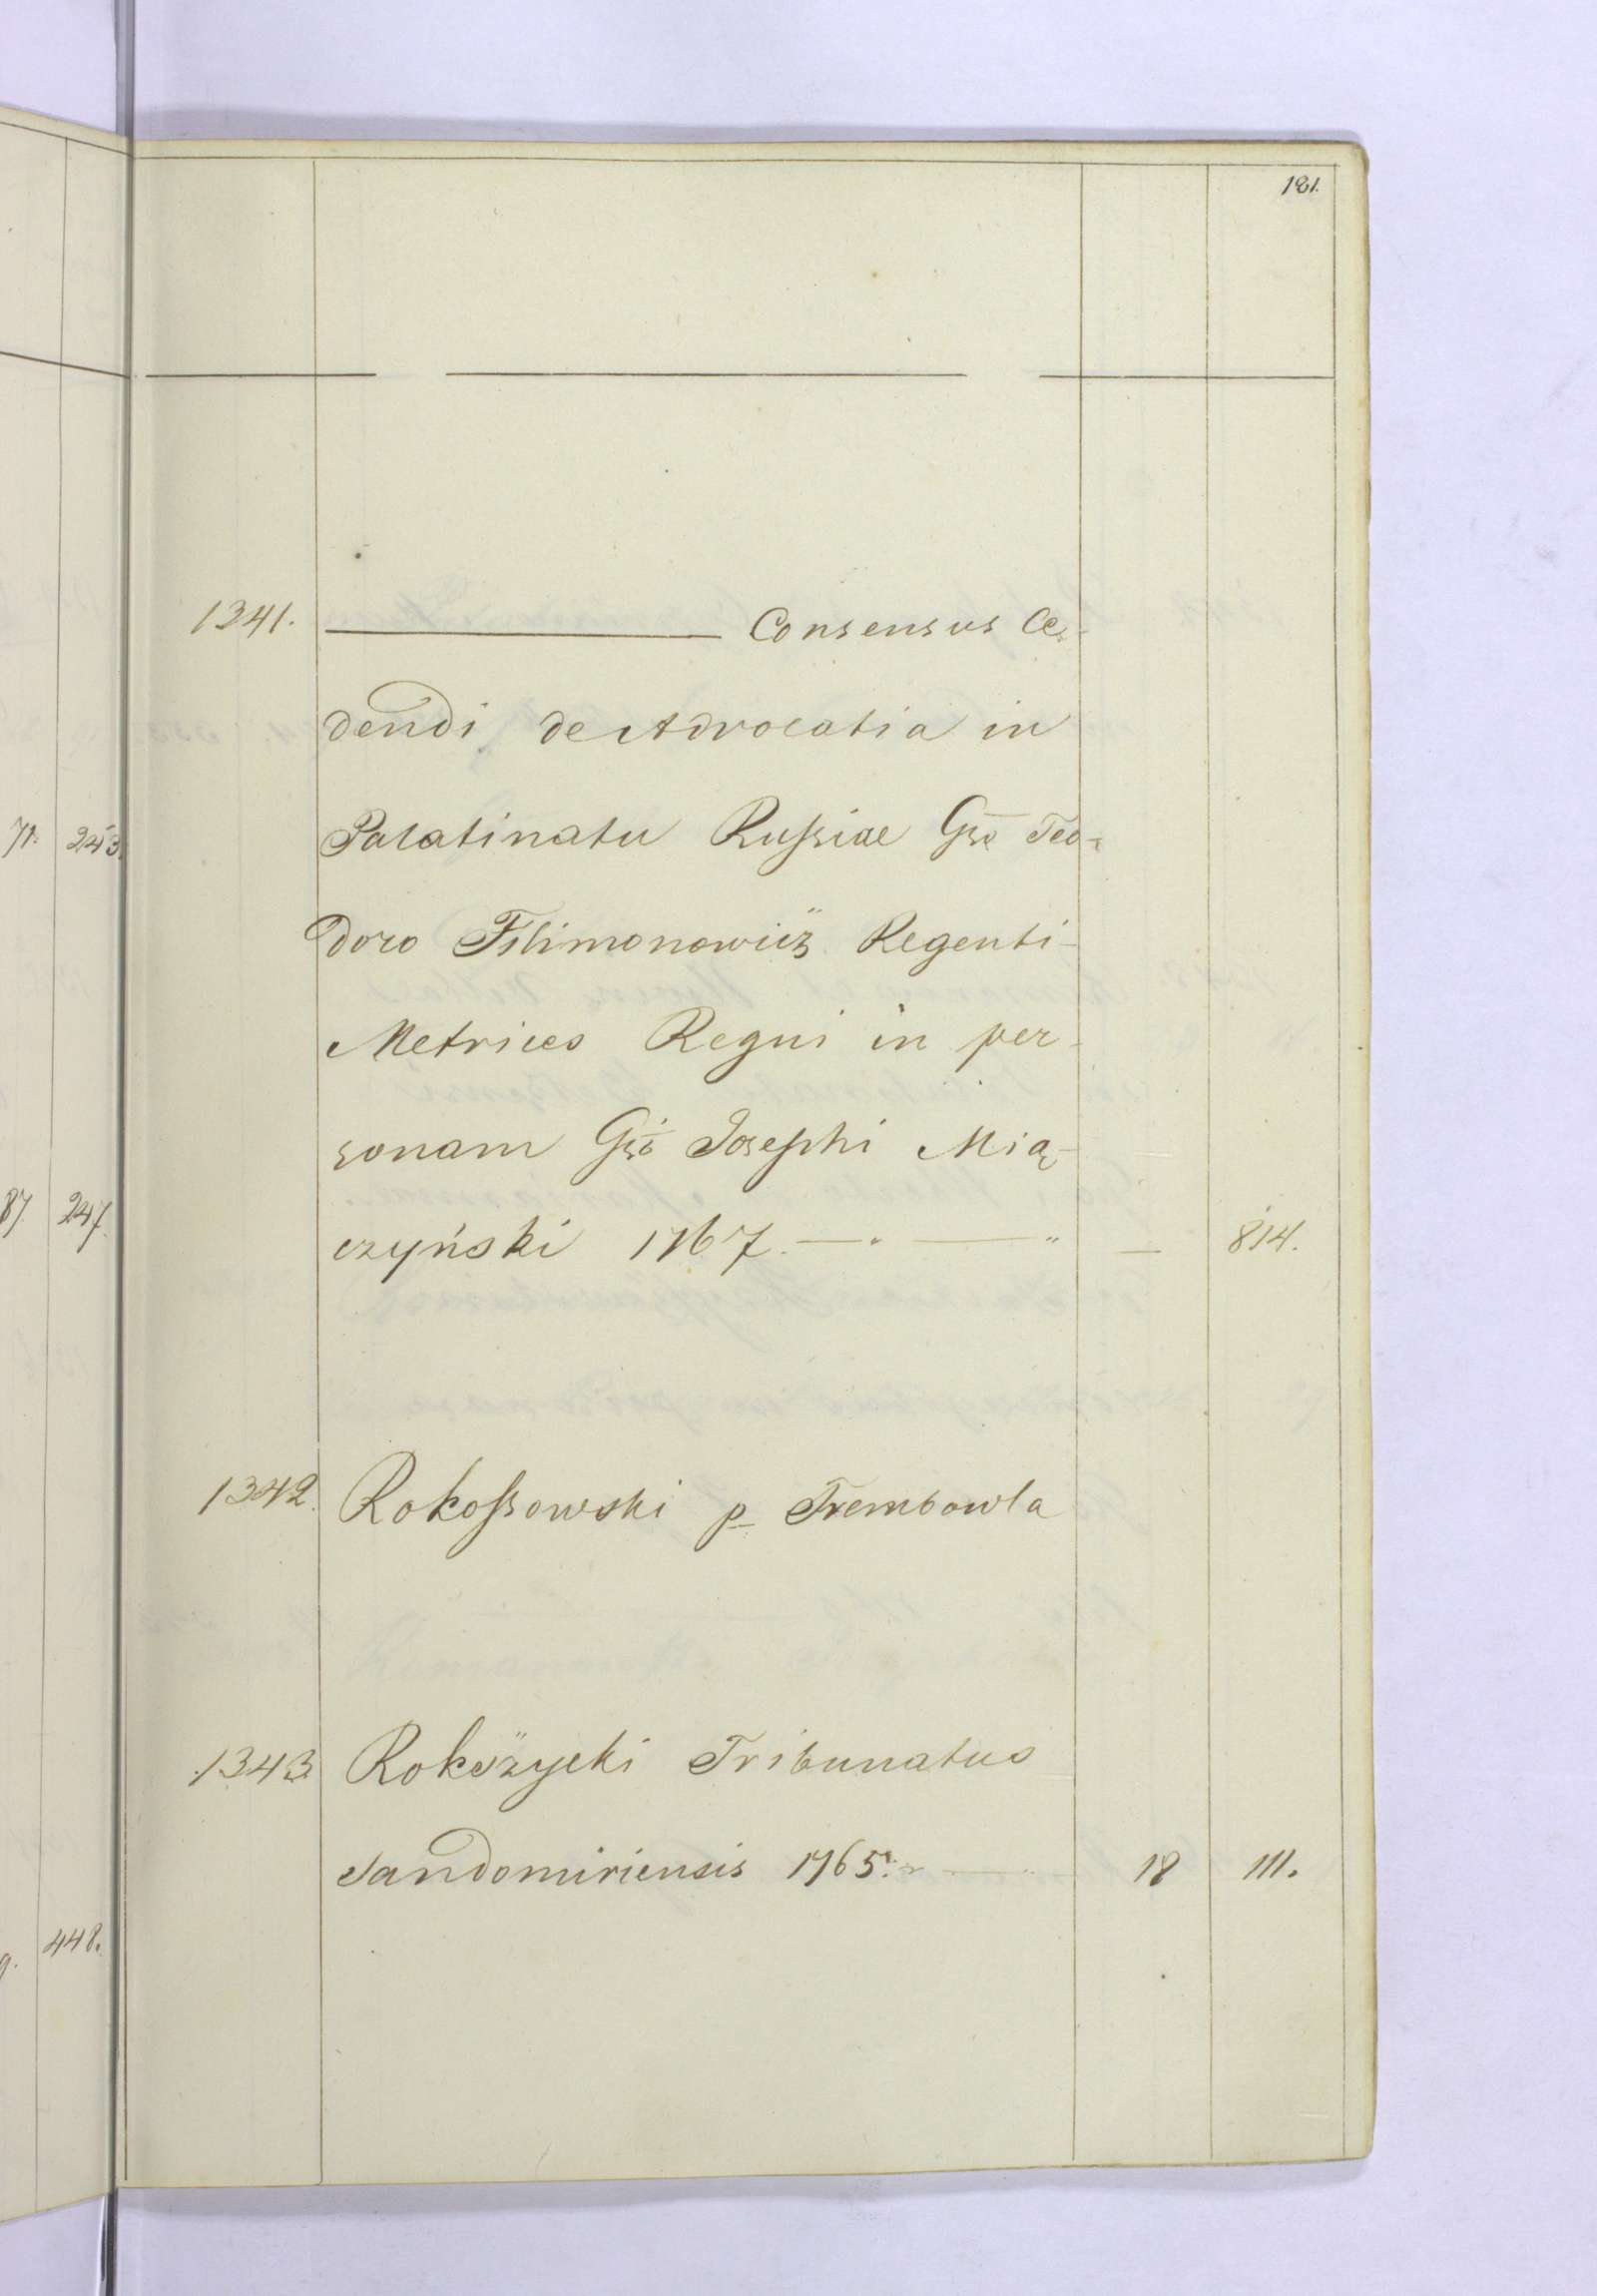 181.
1341. Consensus Ce-
dendi de Advocatia in
Palatinatu Russiae Gso Teo-
doro Filimonowicz Regenti
Metrices Regni in per-
sonam Gsi Josephi Mią-
czyński 1767. — 814.
1342. Rokossowski p. Trembowla
1343. Rokszycki Tribunatus
Sandomiriensis 1765. 18 111.
71. 243.
87 247.
9. 448.